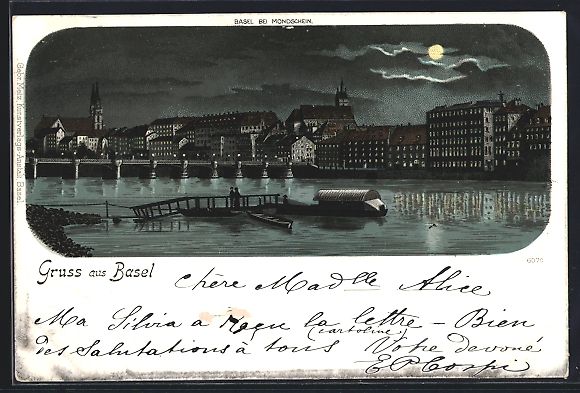 BASEL BEI MONDSCHEIN.
Gebr. Metz, Kunstverlags-Anstalt, Basel.
6076
Gruss aus Basel
Chère Madlle Alice
Ma Silvia a reçu la lettre – Bien
(cartoline)
des Salutations à tous Votre devoué